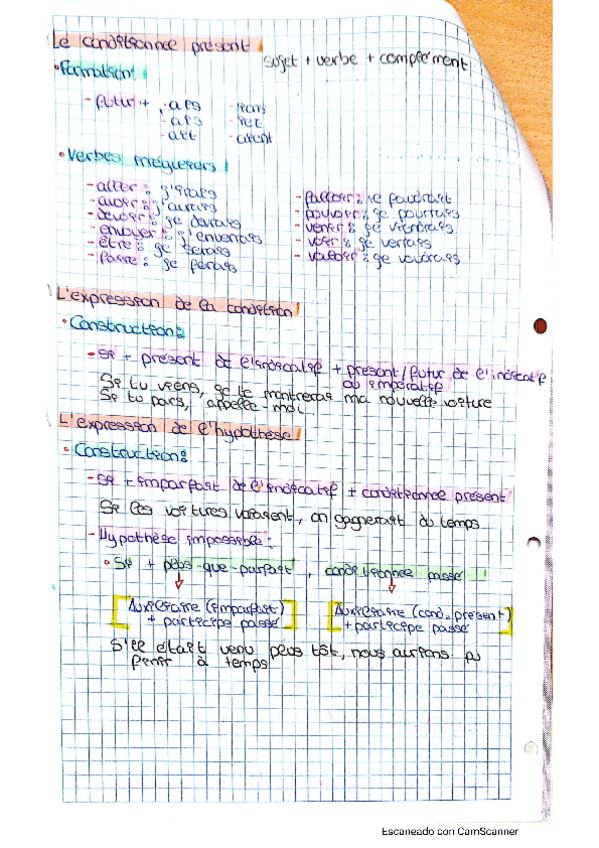 Le conditionnel présent
sujet + verbe + complément
• Formation:
- futur + -ais -ions
-ais -iez
-ait -aient
• Verbes irréguliers
- aller : j'irais
- avoir : j'aurais
- devoir : je devrais
- envoyer : j'enverrais
- être : je serais
- faire : je ferais
- falloir : il faudrait
- pouvoir : je pourrais
- venir : je viendrais
- voir : je verrais
- vouloir : je voudrais
L'expression de la condition
• Construction:
- Si + présent de l'indicatif + présent/futur de l'indicatif
ou impératif
Si tu viens, je te montrerai ma nouvelle voiture
Si tu pars, appelle-moi
L'expression de l'hypothèse
• Construction:
- Si + imparfait de l'indicatif + conditionnel présent
Si les voitures volaient, on gagnerait du temps
- Hypothèse impossible:
• Si + plus-que-parfait, conditionnel passé
Auxiliaire (imparfait) + participe passé
Auxiliaire (cond. présent) + participe passé
S'il était venu plus tôt, nous aurions pu
finir à temps
Escaneado con CamScanner